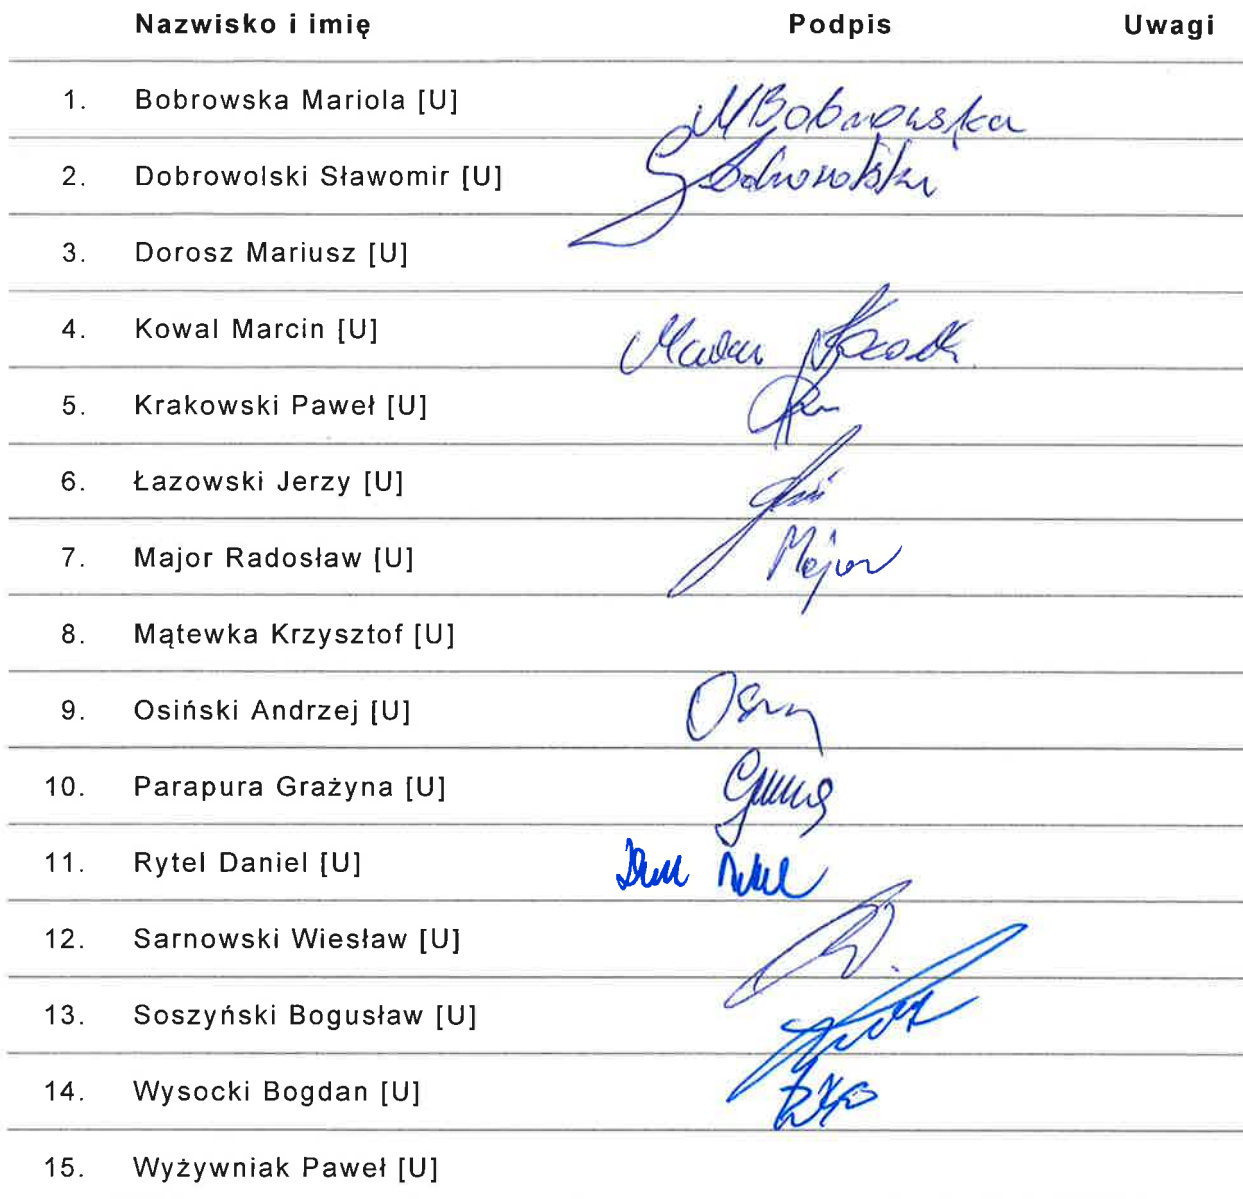 Nazwisko i imię Podpis Uwagi
1. Bobrowska Mariola [U] MBobrowska
2. Dobrowolski Sławomir [U] Dobrowolski
3. Dorosz Mariusz [U]
4. Kowal Marcin [U] Marcin
5. Krakowski Paweł [U]
6. Łazowski Jerzy [U]
7. Major Radosław [U] Major
8. Mątewka Krzysztof [U]
9. Osiński Andrzej [U]
10. Parapura Grażyna [U]
11. Rytel Daniel [U]
12. Sarnowski Wiesław [U]
13. Soszyński Bogusław [U]
14. Wysocki Bogdan [U]
15. Wyżywniak Paweł [U]